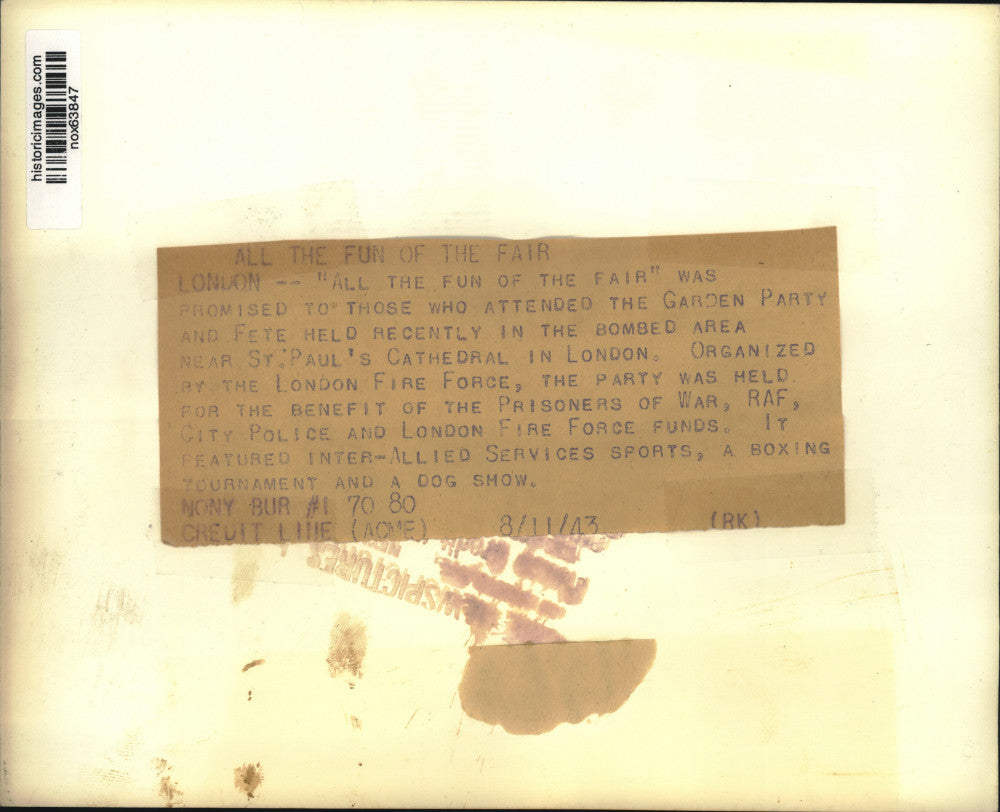 historicimages.com
nox63847
ALL THE FUN OF THE FAIR
LONDON -- "ALL THE FUN OF THE FAIR" WAS
PROMISED TO THOSE WHO ATTENDED THE GARDEN PARTY
AND FETE HELD RECENTLY IN THE BOMBED AREA
NEAR ST. PAUL'S CATHEDRAL IN LONDON. ORGANIZED
BY THE LONDON FIRE FORCE, THE PARTY WAS HELD
FOR THE BENEFIT OF THE PRISONERS OF WAR, RAF,
CITY POLICE AND LONDON FIRE FORCE FUNDS. IT
FEATURED INTER-ALLIED SERVICES SPORTS, A BOXING
TOURNAMENT AND A DOG SHOW.
NONY BUR #1 70 80
CREDIT LINE (ACME) 8/11/43 (RK)
EWSPICTURES